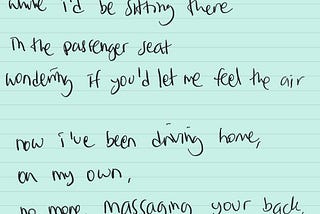 while i'd be sitting there
in the passenger seat
wondering if you'd let me feel the air
now i've been driving home,
on my own,
no more massaging your back,